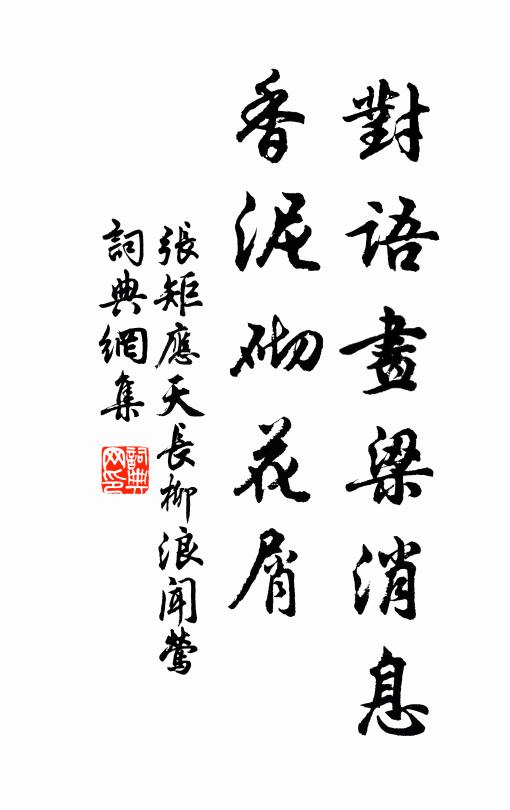 對語畫梁消息
香泥砌花屑
張矩應天長柳浪聞鶯
詞典網集
詞典網印